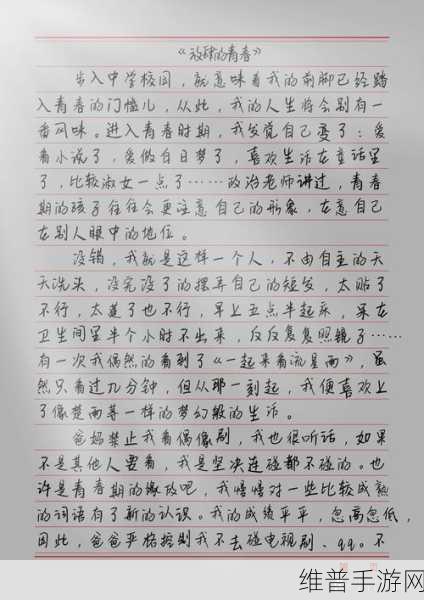 《放肆的青春》
步入中学校园，就意味着我的前脚已经踏
入青春的门槛儿，从此，我的人生将会别有一
番风味。进入青春时期，我发觉自己变了：爱
看小说了，爱做白日梦了，喜欢生活在童话里
了，比较淑女一点了……政治老师讲过，青春
期的孩子往往会更注意自己的形象，在意自己
在别人眼中的地位。
没错，我就是这样一个人，不由自主的天
天洗头，没完没了的摆弄自己的短发，太贴了
不行，太蓬了也不行，早上五点半起来，呆在
卫生间里半个小时不出来，反反复复照镜子……
有一次我偶然的看到了《一起来看流星雨》，虽
然只看过几分钟，但从那一刻起，我便喜欢上
了像楚雨荨一样的梦幻般的生活。
爸妈禁止我看偶像剧，我也很听话，如果
不是其他人要看，我是坚决连碰都不碰的。也
许是青春期的缘故吧，我悄悄对一些比较成熟
的词语有了新的认识。我的成绩平平，忽高忽低，
因此，爸爸严格控制我不去碰电视剧、qq。不
维普手游网